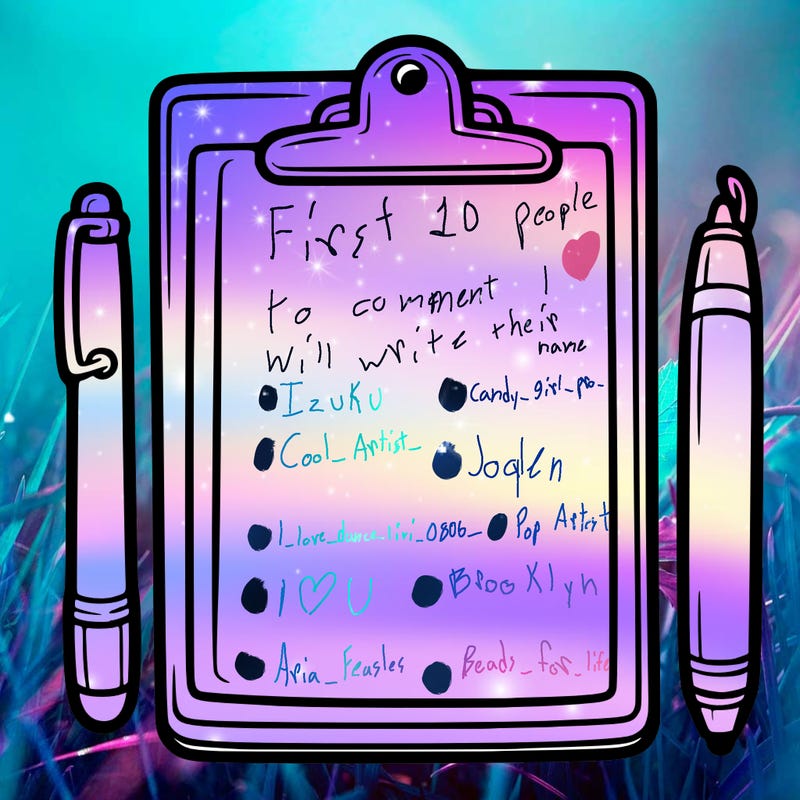 First 10 people
to comment I
will write their
name
Izuku
Candy_girl_pro-
Cool_Artist_
Joqlen
I_love_dance_livi_0806_
Pop Artist
I ♡ U
Brooklyn
Aria_Feasles
Beads_for_life